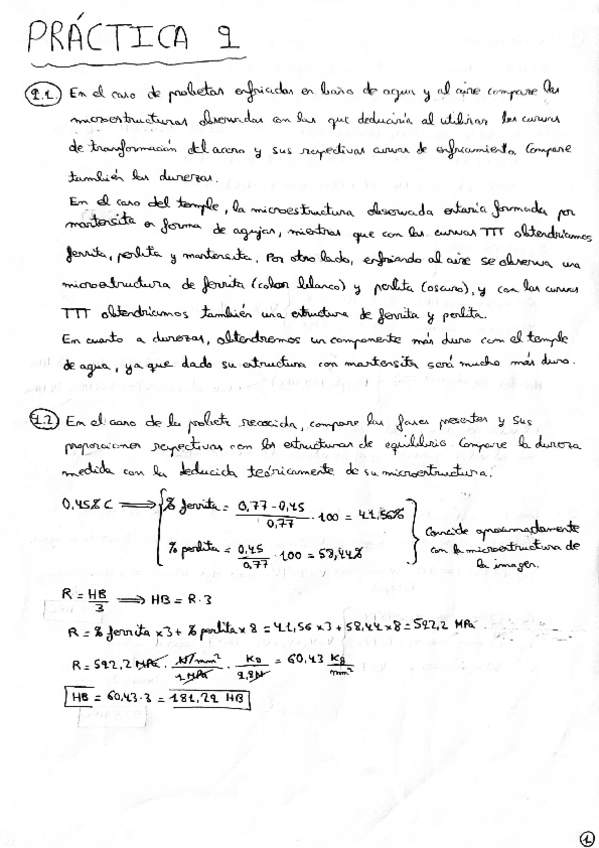 PRÁCTICA 1
1.1 En el caso de probetas enfriadas en baño de agua y al aire compare las
microestructuras observadas con las que deduciría al utilizar las curvas
de transformación del acero y sus respectivas curvas de enfriamiento. Compare
también las durezas.
En el caso del temple, la microestructura observada estaría formada por
martensita en forma de agujas, mientras que con las curvas TTT obtendríamos
ferrita, perlita y martensita. Por otro lado, enfriando al aire se observa una
microestructura de ferrita (color blanco) y perlita (oscuro), y con las curvas
TTT obtendríamos también una estructura de ferrita y perlita.
En cuanto a durezas, obtendremos un componente más duro con el temple
de agua, ya que dado su estructura con martensita será mucho más duro.
1.2 En el caso de la probeta recocida, compare las fases presentes y sus
proporciones respectivas con las estructuras de equilibrio. Compare la dureza
medida con la deducida teóricamente de su microestructura.
0,45% C ⟹ { % ferrita = (0,77 - 0,45) / 0,77 · 100 = 41,56%
% perlita = 0,45 / 0,77 · 100 = 58,44% }
Coincide aproximadamente
con la microestructura de
la imagen.
R = HB / 3 ⟹ HB = R · 3
R = % ferrita x 3 + % perlita x 8 = 41,56 x 3 + 58,44 x 8 = 592,2 MPa
R = 592,2 MPa · N/mm² / 1 MPa · Kg / 9,8N = 60,43 Kg / mm²
HB = 60,43 · 3 = 181,29 HB
1